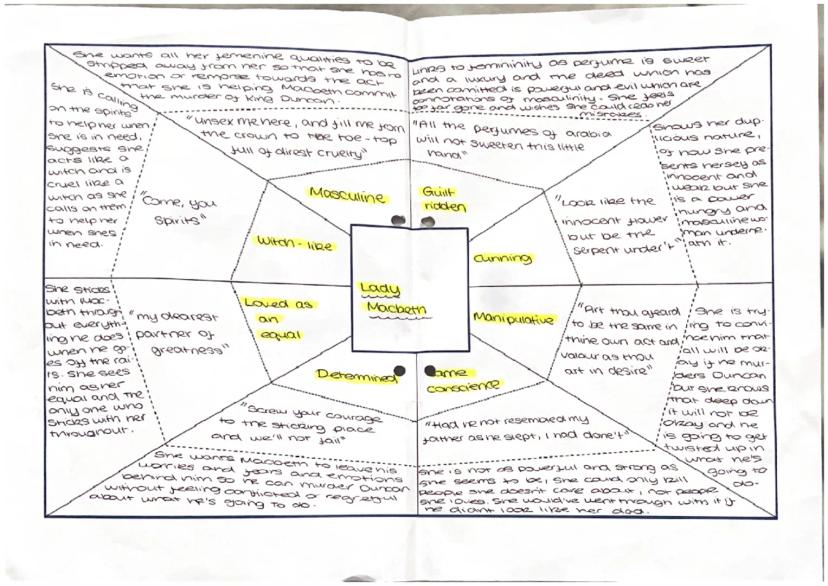 She wants all her femenine qualities to be
stripped away from her so that she has no
emotion or remorse towards the act
that she is helping Macbeth commit
the murder of King Duncan.
"unsex me here, and fill me from
the crown to the toe-top
full of direst cruelty"
Masculine
Links to femininity as perfume is sweet
and a luxury and the deed which has
been comitted is powerful and evil which are
connotations of masculinity. She feels
too far gone and wishes she could redo her
mistakes.
"All the perfumes of arabia
will not sweeten this little
hand"
Guilt
ridden
She is calling
on the spirits
to help her when
she is in need,
suggests she
acts like a
witch and is
cruel like a
witch as she
calls on them
to help her
when shes
in need.
"Come, you
spirits"
Witch-like
Shows her dup-
licious nature,
of how she pre-
sents herself as
innocent and
weak but she
is a power
hungry and
masculine wo-
man undern-
ath it.
"Look like the
innocent flower
but be the
serpent under't"
Cunning
Lady
Macbeth
She sticks
with Mac-
beth through-
out everyth-
ing he does
when he go-
es off the rai-
ls. She sees
him as her
equal and the
only one who
sticks with her
throughout.
"my dearest
partner of
greatness"
Loved as
an
equal
She is try-
ing to convi-
nce him that
all will be ok-
ay if he mur-
ders Duncan
but she knows
that deep down
it will not be
okay and he
is going to get
twisted up in
what he's
going to
do.
"Art thou afeard
to be the same in
thine own act and
valour as thou
art in desire"
Manipulative
Determined
"Screw your courage
to the sticking place
and we'll not fail"
She wants Macbeth to leave his
worries and fears and emotions
behind him so he can murder Duncan
without feeling conflicted or regretful
about what he's going to do.
conscience
"Had he not resembled my
father as he slept, I had done't"
She is not as powerful and strong as
she seems to be, she could only kill
people she doesn't care about, not people
she loves. She would've went through with it if
he didnt look like her dad.